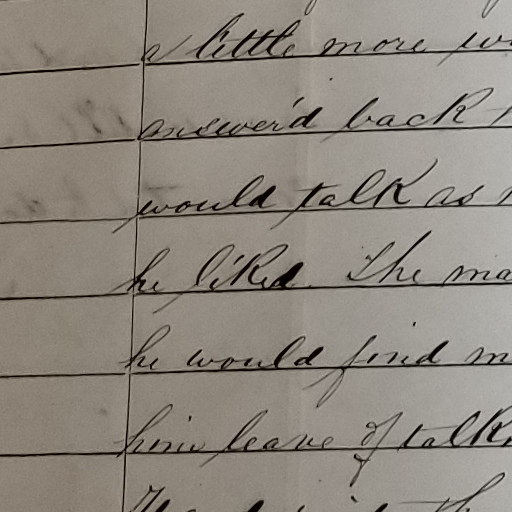 a little more
answer'd back
would talk as
he liked. The
he would find
him leave of